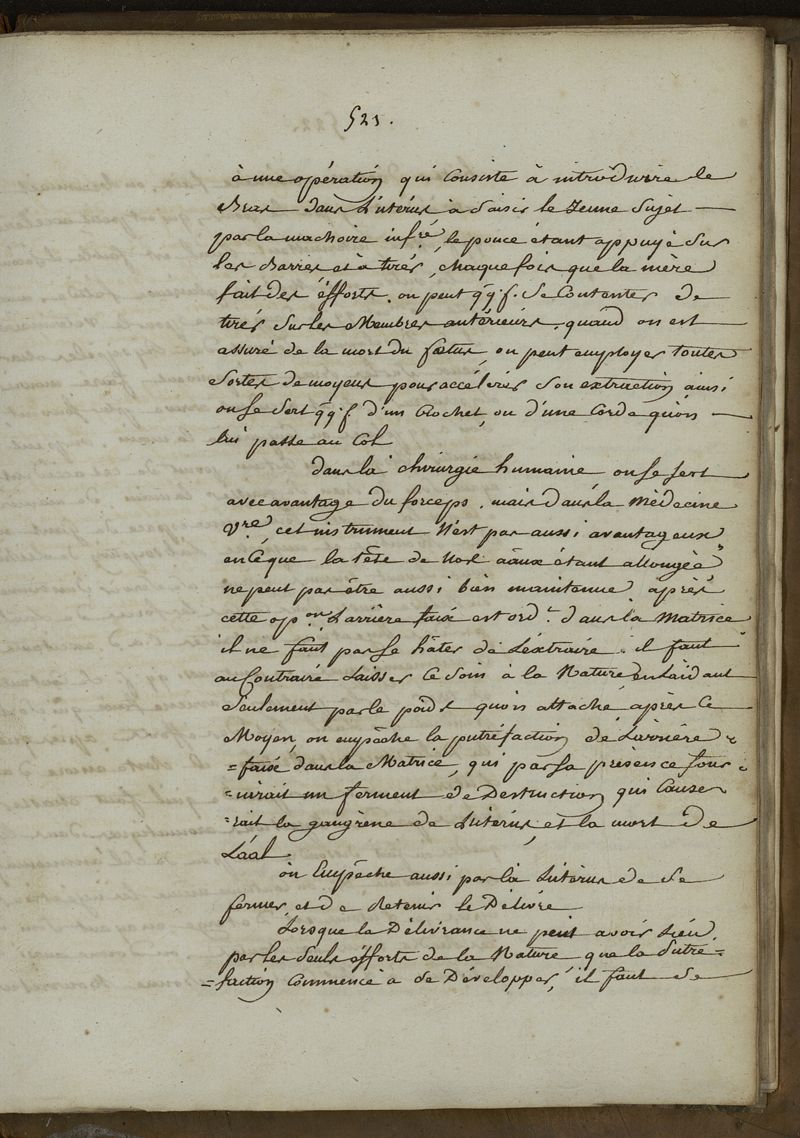 521.
à une opération qui Consiste à introduire le
Bras dans L'utérus à Saisir le Jeune Sujet —
par la machoire inf.re, le pouce étant appuyé Sur
les Barres et à tirés, chaque fois que la mère
fait des éfforts. on peut qq.f. Se Contenter de
tirés Sur les Membres antérieurs. quand on est
assuré de la mort du fœtus, on peut employer toutes
Sortes de moyens pour accélérer Son extraction ainsi
on Se Sert qq.f. d'un Crochet, ou d'une Corde qu'on —
lui passe au Col
dans la chirurgie humaine on Se Sert
avec avantage du forceps. mais dans la Médecine
V.re, cet instrument N'est pas aussi avantageux
en Ce que la tête de Nos aãux étant allongée
ne peut pas être aussi bien maintenue. après
cette op.on L'arrière faix est ord.t dans la Matrice
il ne faut pas Se hâter de L'éxtraire. il faut
au Contraire Laisser Ce Soin à la Nature, en L'aidant
Seulement par le poids qu'on attache, après Ce
Moyen, on empêche la putréfaction de L'arrière
=faix, dans la Matrice, qui par Sa présence four
=nirait un ferment de Destruction qui Cause
=rait la gangrène de L'utérus, et la mort de
L'aal.
on Empêche aussi par là L'utérus de Se
fermer, et de Retenir le Délivre
Lorsque la Délivrance ne peut avoir Lieu
par les Seuls éfforts de la Nature que la Putré=
=faction Commence à Se Développer, il faut Se